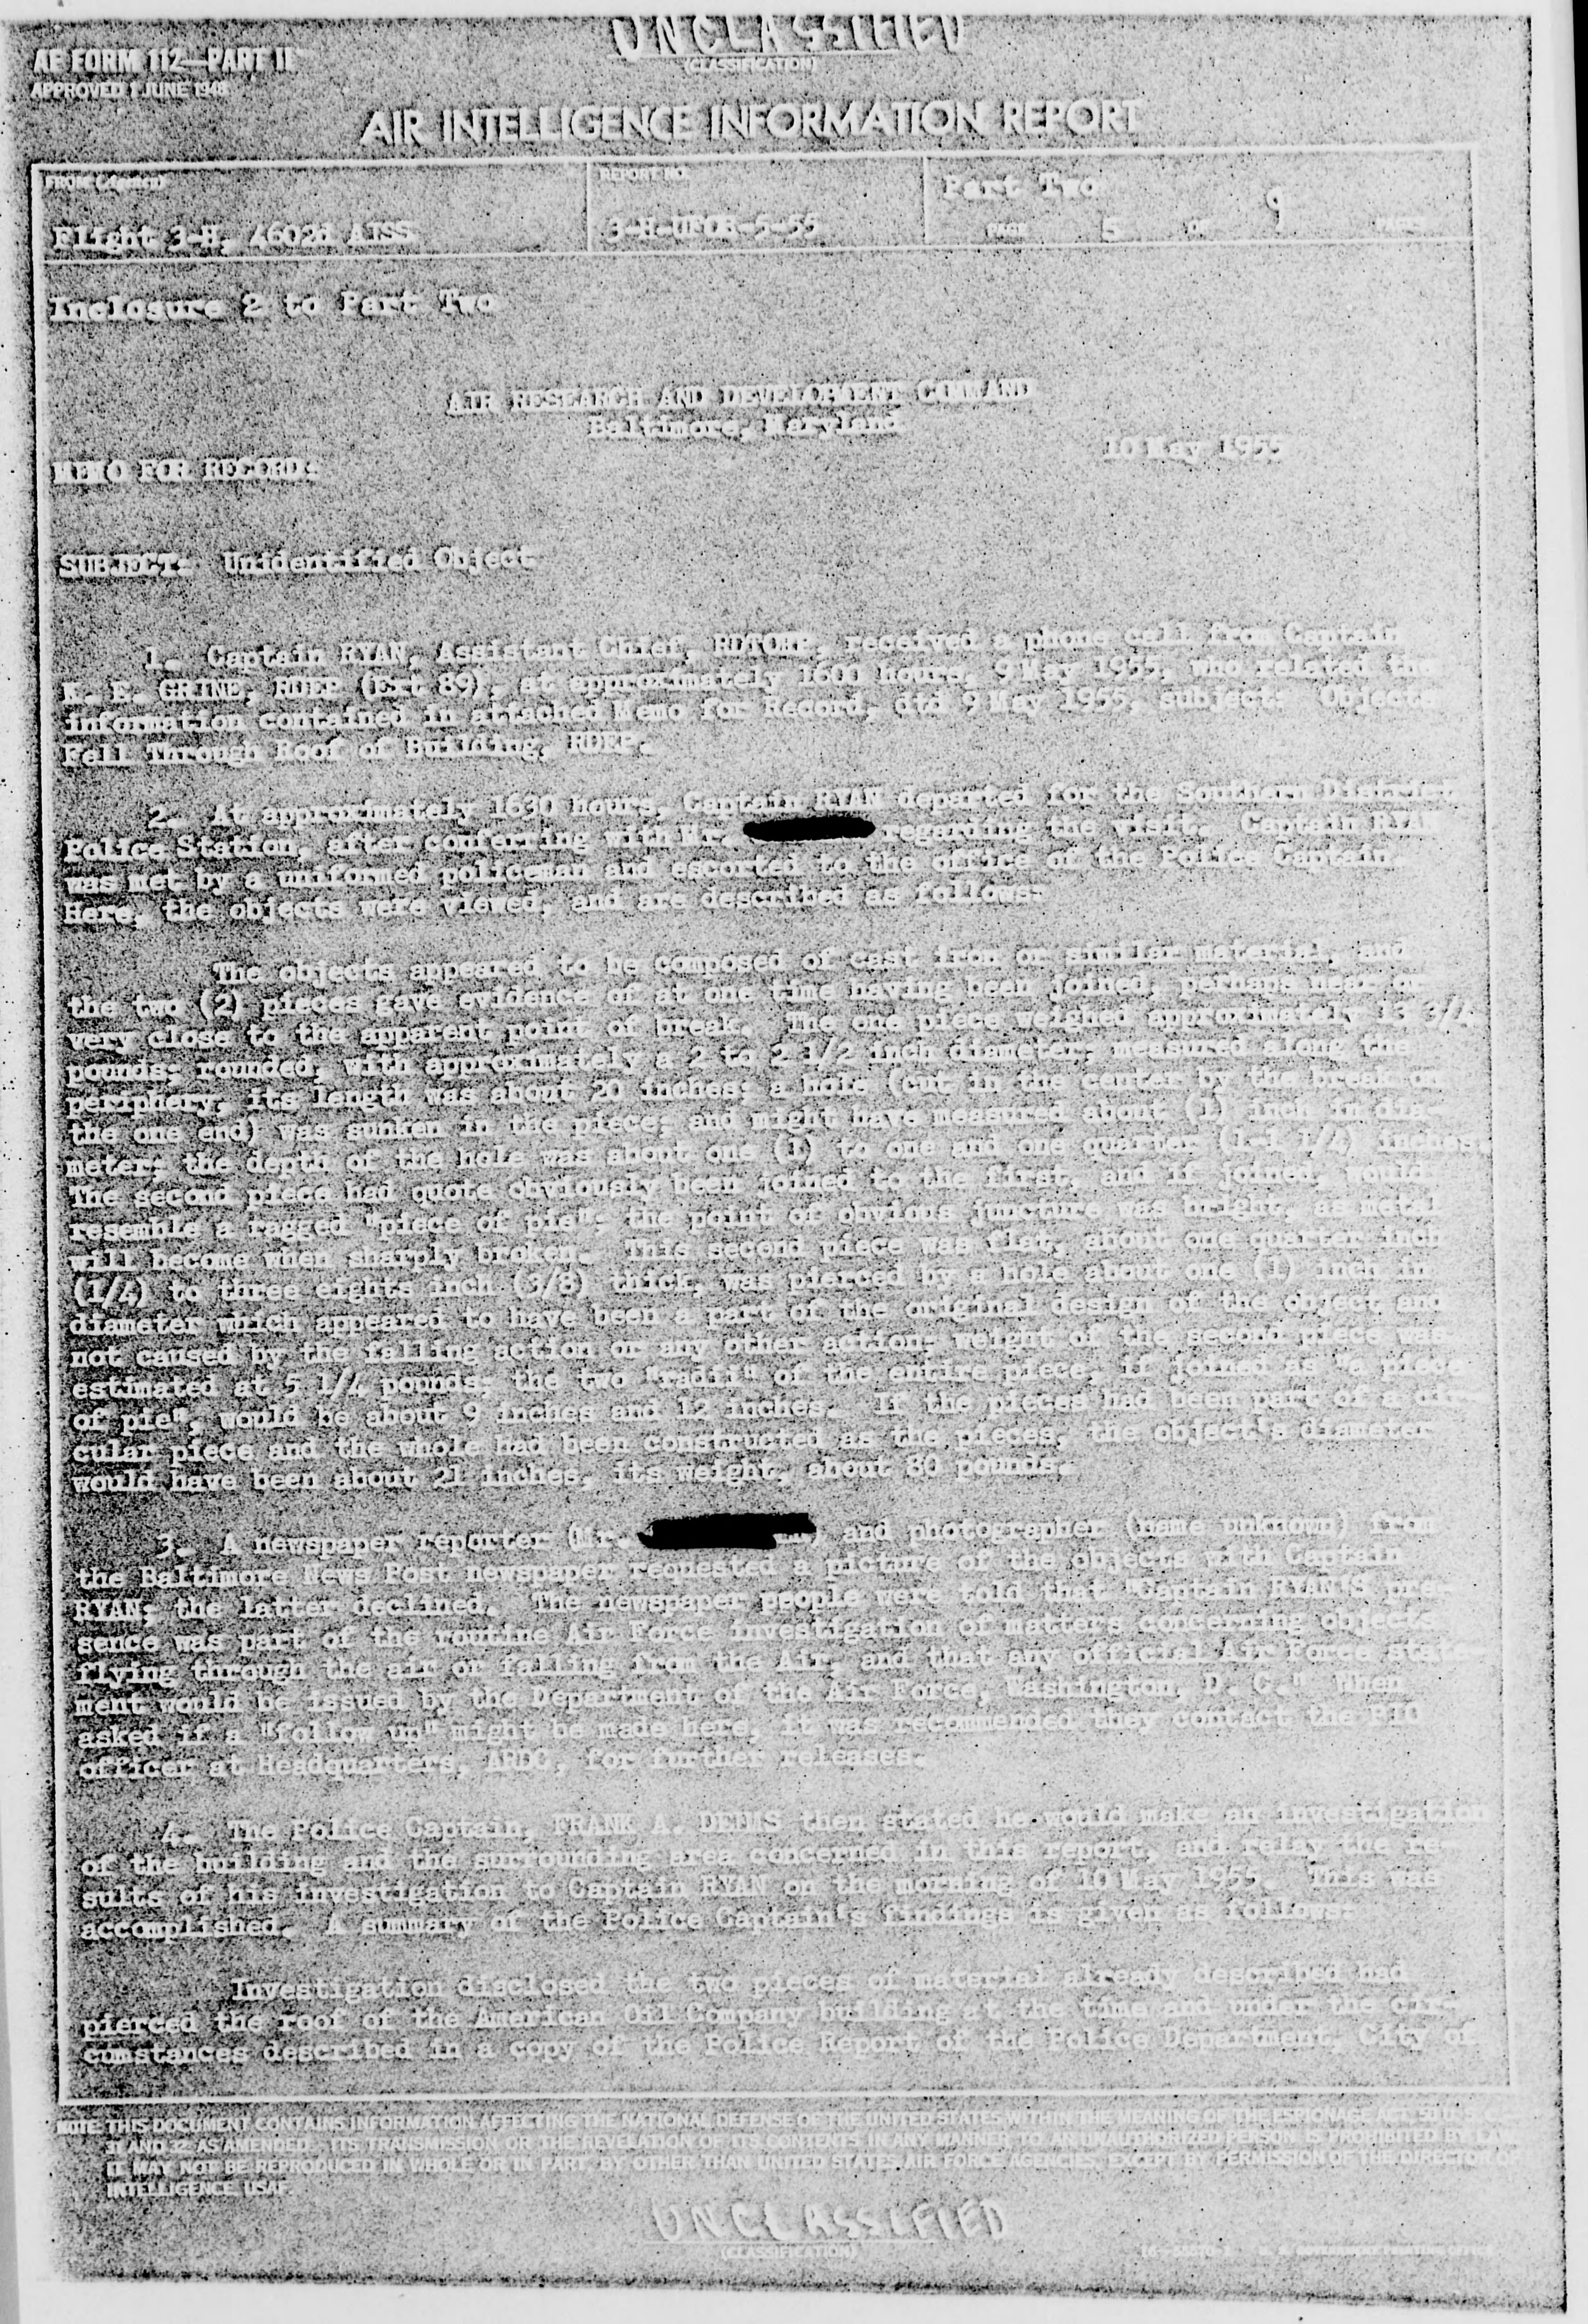 UNCLASSIFIED
(CLASSIFICATION)
AF FORM 112—PART II
APPROVED 1 JUNE 1948
AIR INTELLIGENCE INFORMATION REPORT
FROM (Agency)
REPORT NO.
Part Two
Flight 3-H, 4602d AISS
3-H-UFOB-5-55
PAGE 5 OF 9 PAGES
Inclosure 2 to Part Two
AIR RESEARCH AND DEVELOPMENT COMMAND
Baltimore, Maryland
10 May 1955
MEMO FOR RECORD:
SUBJECT: Unidentified Object
1. Captain RYAN, Assistant Chief, received a phone call from Captain
E. E. GRINE, RDEP (Ext 89), at approximately 1600 hours, 9 May 1955, who related the
information contained in attached Memo for Record, dtd 9 May 1955, subject: Objects
Fell Through Roof of Building, RDEP.
2. At approximately 1630 hours, Captain RYAN departed for the Southern District
Police Station, after conferring with Mr. regarding the visit. Captain RYAN
was met by a uniformed policeman and escorted to the office of the Police Captain.
Here, the objects were viewed, and are described as follows:
The objects appeared to be composed of cast iron or similar material, and
the two (2) pieces gave evidence of at one time having been joined, perhaps near or
very close to the apparent point of break. The one piece weighed approximately 13 3/4
pounds; rounded, with approximately a 2 to 2 1/2 inch diameter, measured along the
periphery. Its length was about 20 inches; a hole (cut in the center by the break on
the one end) was sunken in the piece; and might have measured about (1) inch in dia-
meter; the depth of the hole was about one (1) to one and one quarter (1-1 1/4) inches.
The second piece had quote obviously been joined to the first, and if joined, would
resemble a ragged "piece of pie"; the point of obvious juncture was bright, as metal
will become when sharply broken. This second piece was flat, about one quarter inch
(1/4) to three eights inch (3/8) thick, was pierced by a hole about one (1) inch in
diameter which appeared to have been a part of the original design of the object and
not caused by the falling action or any other action; weight of the second piece was
estimated at 5 1/4 pounds; the two "radii" of the entire piece, if joined as "a piece
of pie", would be about 9 inches and 12 inches. If the pieces had been part of a cir-
cular piece and the whole had been constructed as the pieces, the object's diameter
would have been about 21 inches, its weight, about 80 pounds.
3. A newspaper reporter (Mr. ) and photographer (name unknown) from
the Baltimore News Post newspaper requested a picture of the objects with Captain
RYAN; the latter declined. The newspaper people were told that "Captain RYAN'S pre-
sence was part of the routine Air Force investigation of matters concerning objects
flying through the air or falling from the Air, and that any official Air Force state-
ment would be issued by the Department of the Air Force, Washington, D. C." When
asked if a "follow up" might be made here, it was recommended they contact the PIO
officer at Headquarters, ARDC, for further releases.
4. The Police Captain, FRANK A. DENMS then stated he would make an investigation
of the building and the surrounding area concerned in this report, and relay the re-
sults of his investigation to Captain RYAN on the morning of 10 May 1955. This was
accomplished. A summary of the Police Captain's findings is given as follows:
Investigation disclosed the two pieces of material already described had
pierced the roof of the American Oil Company building at the time and under the cir-
cumstances described in a copy of the Police Report of the Police Department, City of
NOTE: THIS DOCUMENT CONTAINS INFORMATION AFFECTING THE NATIONAL DEFENSE OF THE UNITED STATES WITHIN THE MEANING OF THE ESPIONAGE ACT, 50 U.S.C.
31 AND 32, AS AMENDED. ITS TRANSMISSION OR THE REVELATION OF ITS CONTENTS IN ANY MANNER TO AN UNAUTHORIZED PERSON IS PROHIBITED BY LAW.
IT MAY NOT BE REPRODUCED IN WHOLE OR IN PART, BY OTHER THAN UNITED STATES AIR FORCE AGENCIES, EXCEPT BY PERMISSION OF THE DIRECTOR OF
INTELLIGENCE, USAF.
UNCLASSIFIED
(CLASSIFICATION)
U. S. GOVERNMENT PRINTING OFFICE